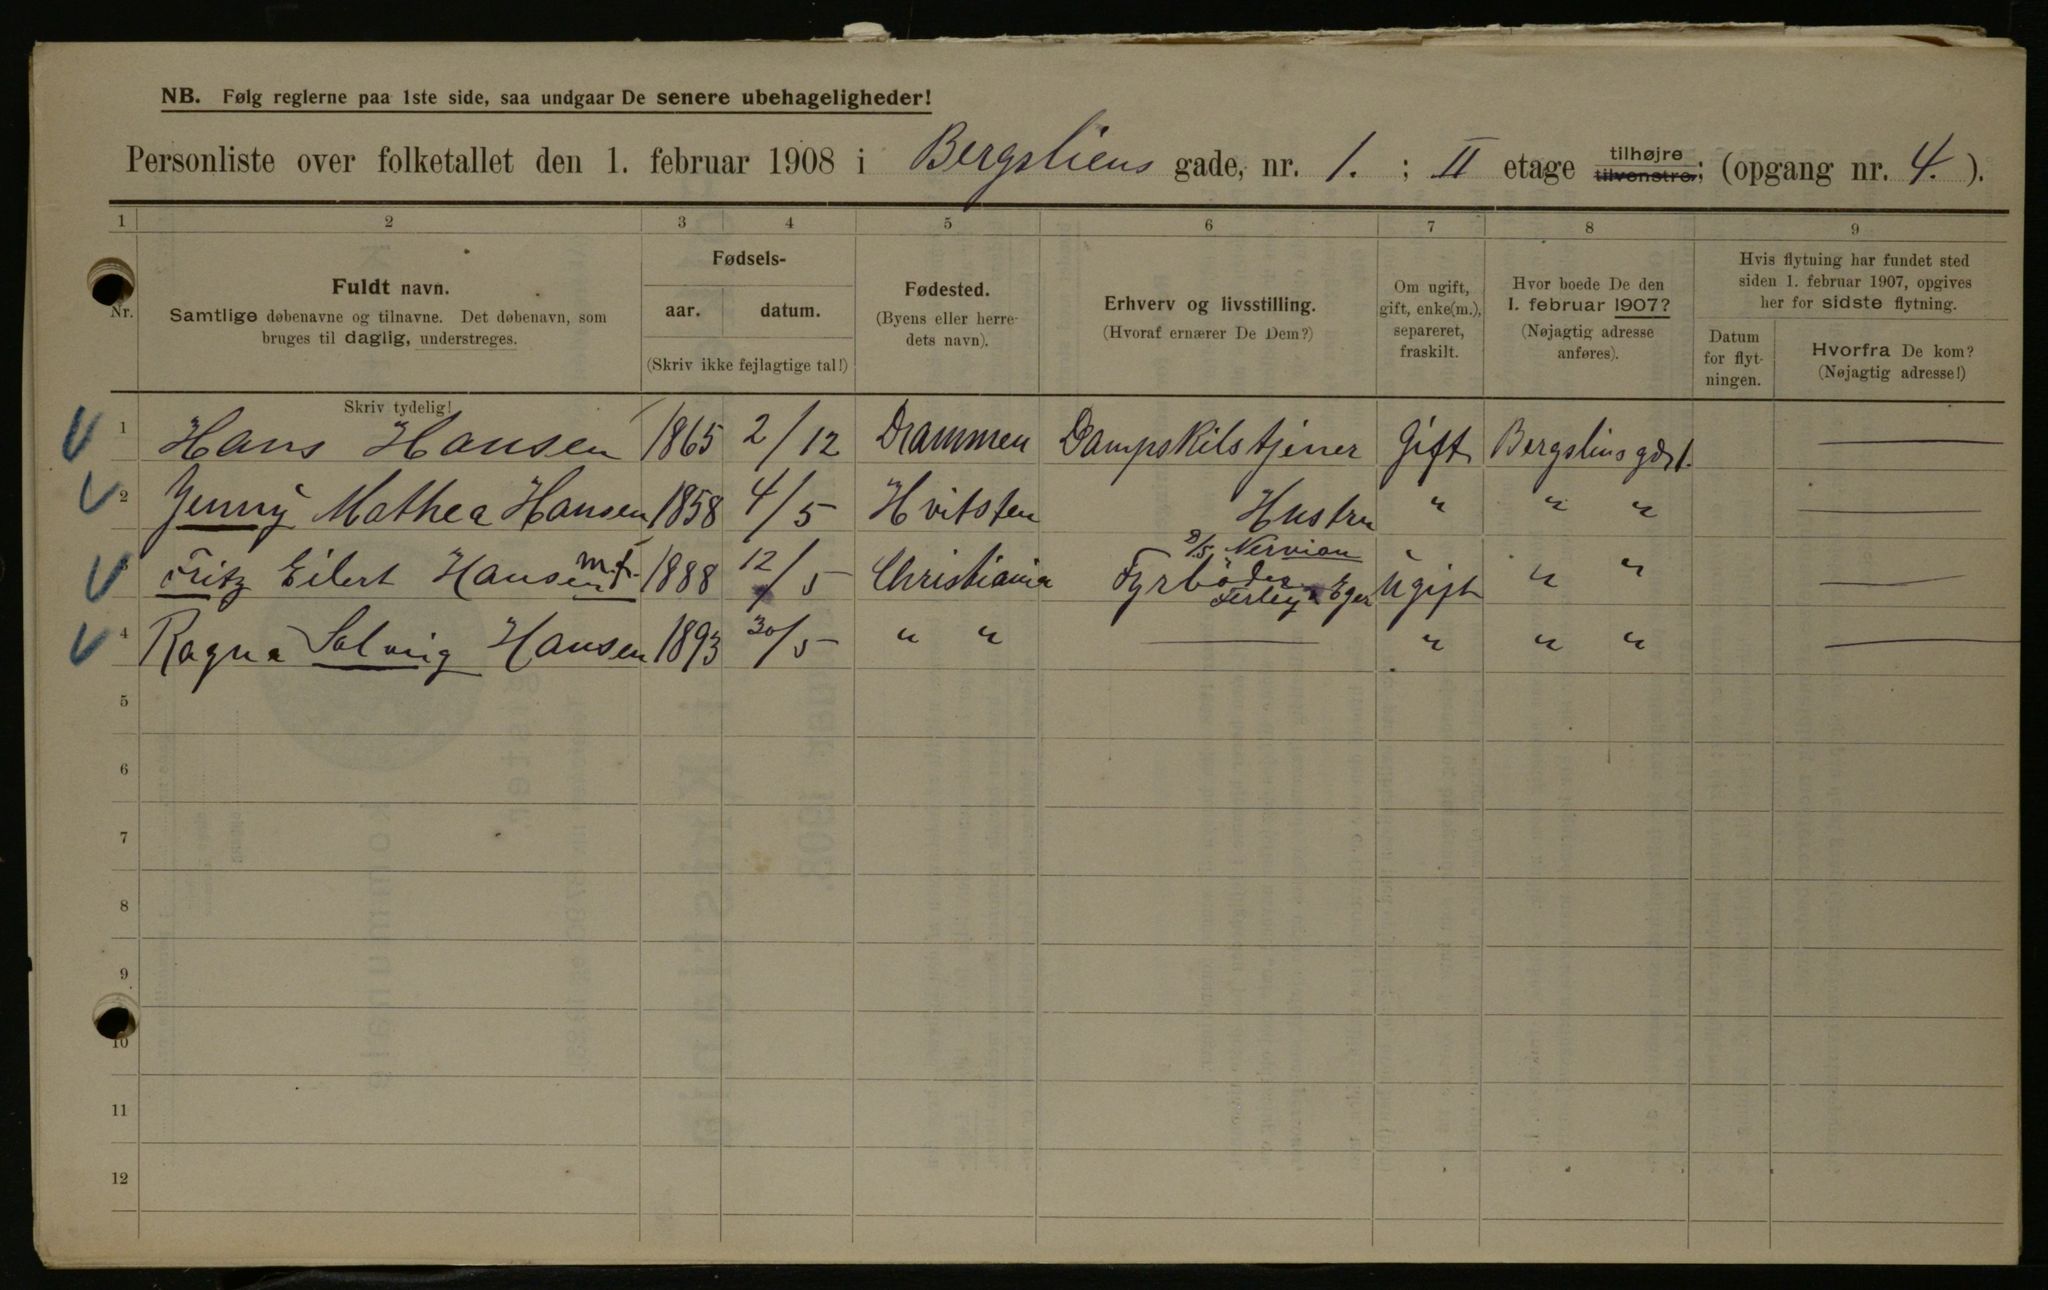 NB. Følg reglerne paa 1ste side, saa undgaar De senere ubehageligheder!
Personliste over folketallet den 1. februar 1908 i Bergsliens gade, nr. 1. ; II etage tilhøjre tilvenstre; (opgang nr. 4. ).
1 2 3 4 5 6 7 8 9
Nr.
Fuldt navn.
Samtlige døbenavne og tilnavne. Det døbenavn, som
bruges til daglig, understreges.
Skriv tydelig!
Fødsels-
aar. datum.
(Skriv ikke fejlagtige tal!)
Fødested.
(Byens eller herre-
dets navn).
Erhverv og livsstilling.
(Hvoraf ernærer De Dem?)
Om ugift,
gift, enke(m.),
separeret,
fraskilt.
Hvor boede De den
1. februar 1907?
(Nøjagtig adresse
anføres).
Hvis flytning har fundet sted
siden 1. februar 1907, opgives
her for sidste flytning.
Datum
for flyt-
ningen.
Hvorfra De kom?
(Nøjagtig adresse!)
1 Hans Hansen 1865 2/12 Drammen Dampskibstjener Gift Bergsliens gd 1.
2 Jenny Mathea Hansen 1858 4/5 Hvitsten Hustru " " "
3 Fritz Eilert Hansen m.f. 1888 12/5 Christiania Fyrböder Ugift " "
4 Ragna Solveig Hansen 1893 30/5 " " " " "
5
6
7
8
9
10
11
12